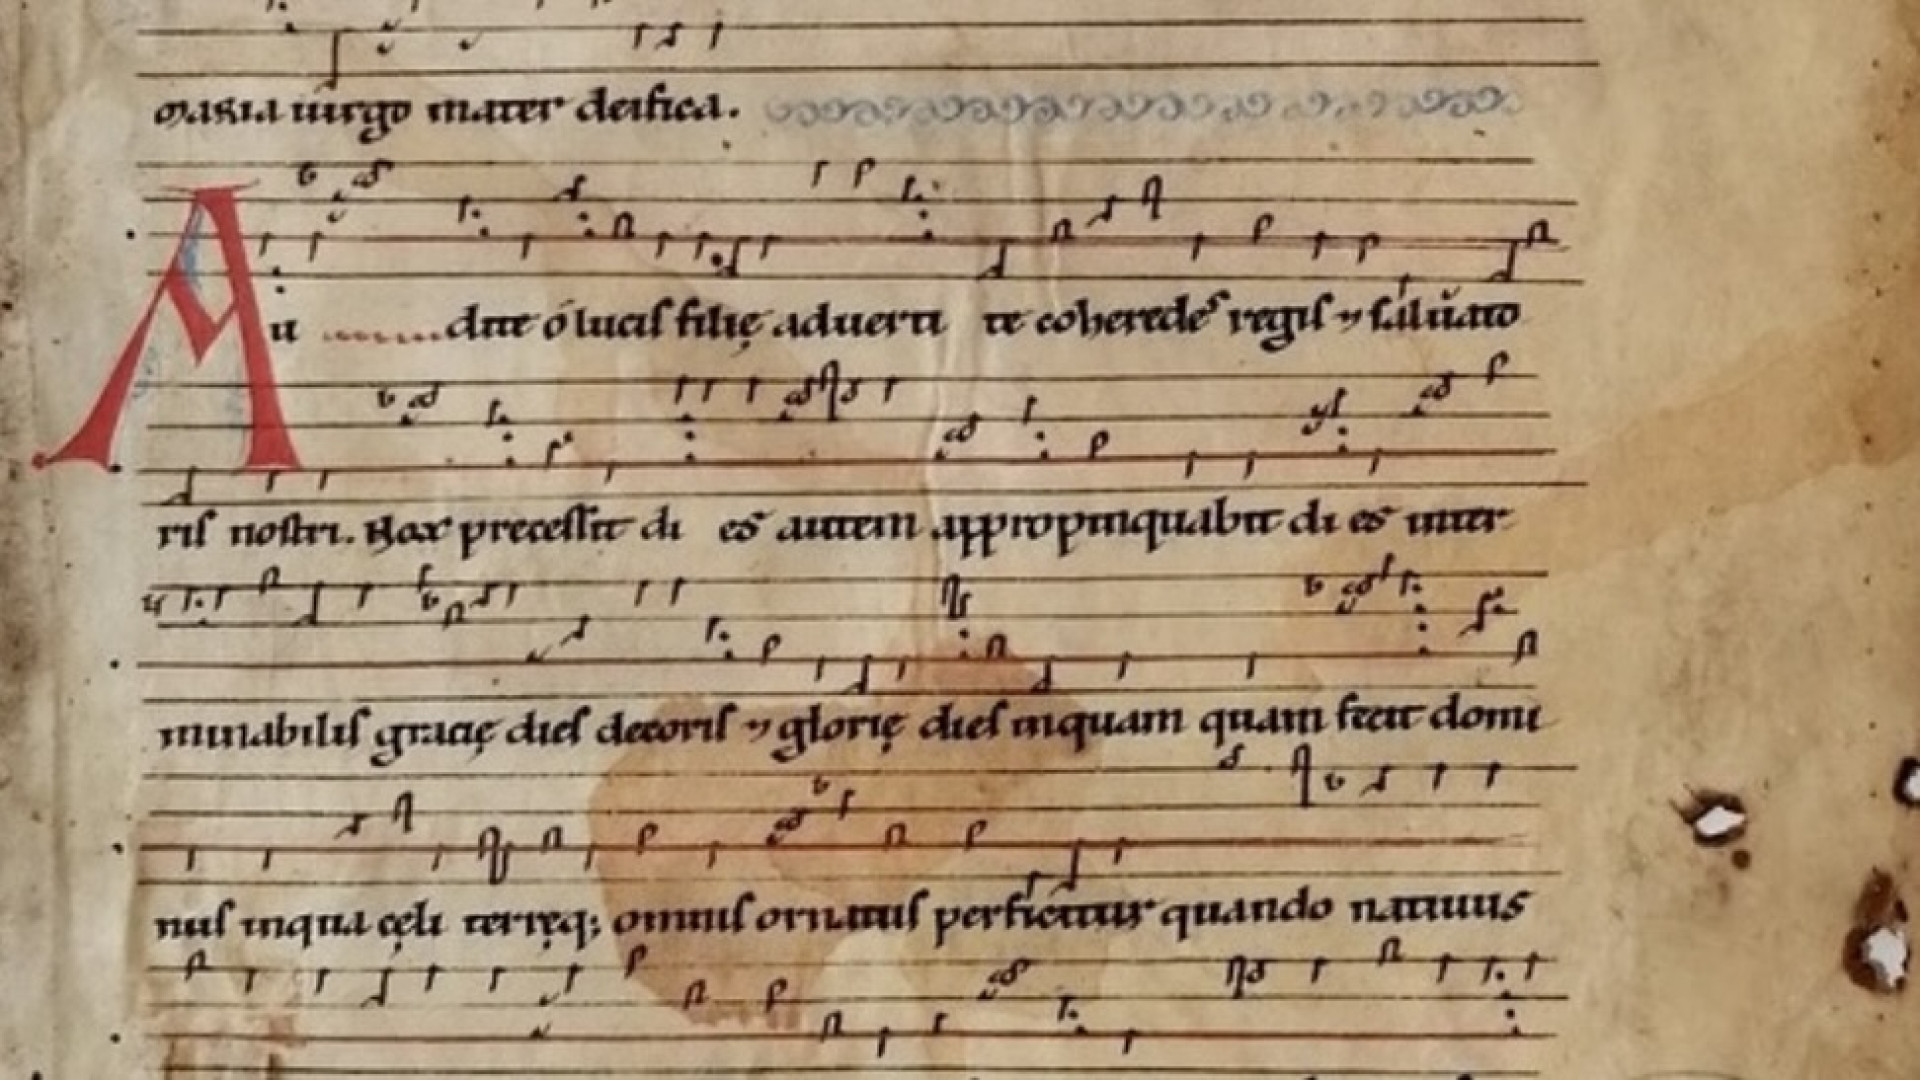 maria uirgo mater deifica.
Au dite ó lucis filię aduerti te coheredes regis ⁊ saluato
ris nostri. Nox precessit di es autem appropinquabit di es inter
minabilis gracię dies decoris ⁊ glorię dies inquam quam fecit domi
nus inqua cęli terręq; omnis ornatus perficitur quando natiuus